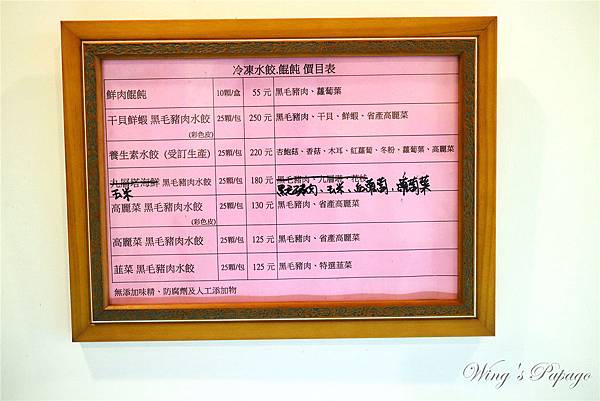 冷凍水餃.餛飩 價目表
鮮肉餛飩 10顆/盒 55 元 黑毛豬肉、蘿蔔葉
干貝鮮蝦 黑毛豬肉水餃 25顆/包 250 元 黑毛豬肉、干貝、鮮蝦、省產高麗菜
(彩色皮)
養生素水餃 (受訂生產) 25顆/包 220 元 杏鮑菇、香菇、木耳、紅蘿蔔、冬粉、蘿蔔葉、高麗菜
九層塔海鮮 黑毛豬肉水餃 25顆/包 180 元 黑毛豬肉、九層塔、花枝
玉米 黑毛豬肉、玉米、紅蘿蔔、蘿蔔葉
高麗菜 黑毛豬肉水餃 25顆/包 130 元 黑毛豬肉、省產高麗菜
(彩色皮)
高麗菜 黑毛豬肉水餃 25顆/包 125 元 黑毛豬肉、省產高麗菜
韭菜 黑毛豬肉水餃 25顆/包 125 元 黑毛豬肉、特選韭菜
無添加味精、防腐劑及人工添加物
Wing's Papago